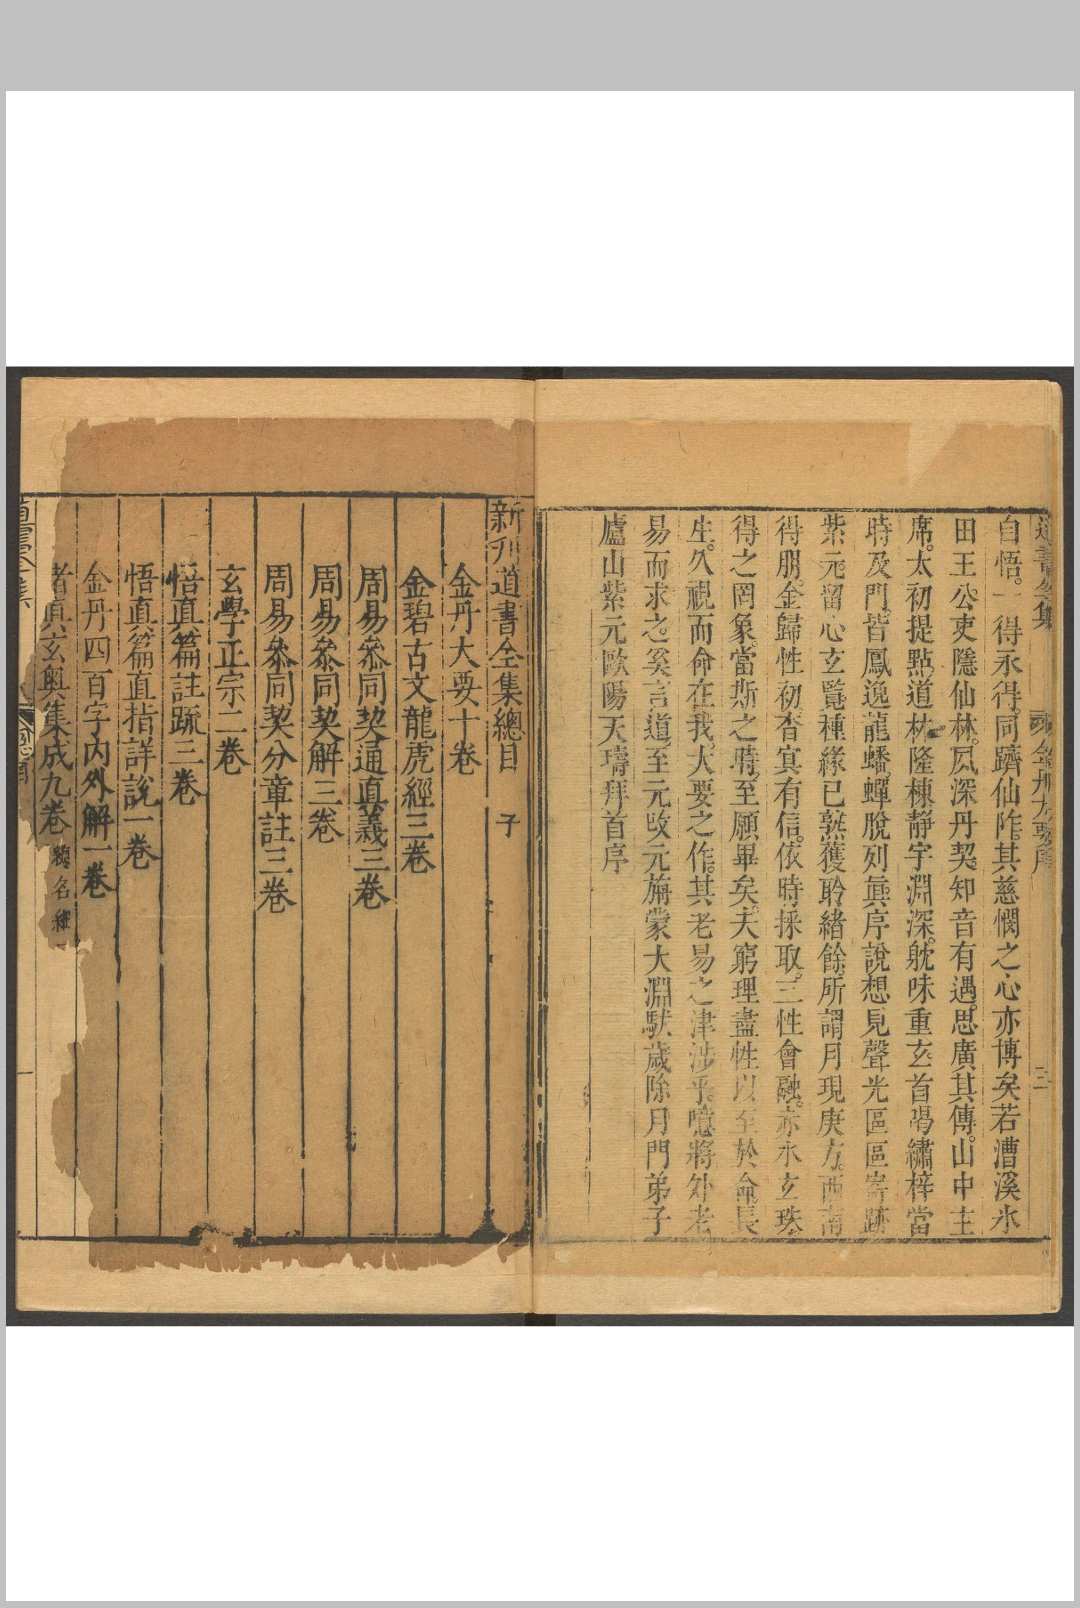 道書全集 金丹大要序 二
自悟。一得永得、同躋仙阼。其慈憫之心亦博矣若漕溪水
田王公吏隱仙林。夙深丹契、知音有遇。思廣其傳。山中主
席。太初提點、道林隆棟、靜宇淵深。躭味重玄、首喝繡梓、當
時及門、皆鳳逸龍蟠、蟬脫列眞、序說想見聲光區區寄跡
紫元留心玄覽、種緣已熟獲聆緒餘、所謂月現庚方。西南
得朋。金歸性初、杳冥有信。依時採取。三性會融、亦水玄珠
得之罔象、當斯之時、至願畢矣、夫窮理盡性以至於命、長
生。久視而命在我。大要之作。其老易之津涉乎。噫將外老
易而求之。奚言道、至元改元旃蒙大淵馱歲除月門弟子
廬山紫元歐陽天璹拜首序
新刋道書全集總目 子
金丹大要十卷
金碧古文龍虎經三卷
周易叅同契通眞義三卷
周易叅同契解三卷
周易叅同契分章註三卷
玄學正宗二卷
悟真篇註疏三卷
悟真篇直指詳說一卷
金丹四百字內外解一卷
諸真玄奧集成九卷
道書全集 總目 一